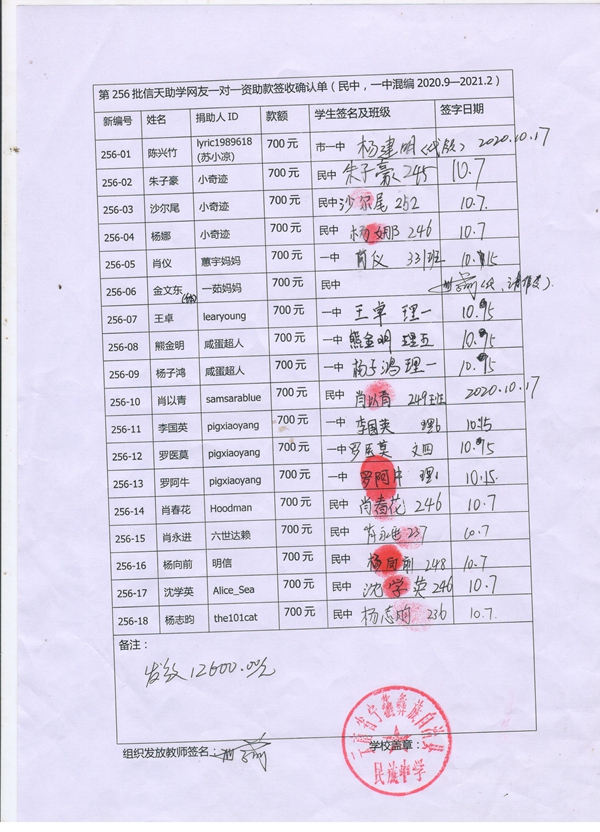 第256批信天助学网友一对一资助款签收确认单（民中，一中混编2020.9—2021.2）
新编号 姓名 捐助人ID 款额 学生签名及班级 签字日期
256-01 陈兴竹 lyric1989618 (苏小凉) 700元 市一中 杨建明(代领) 2020.10.17
256-02 朱子豪 小奇迹 700元 民中 朱子豪 245 10.7
256-03 沙尔尾 小奇迹 700元 民中 沙尔尾 252 10.7.
256-04 杨娜 小奇迹 700元 民中 杨娜 246 10.7
256-05 肖仪 蕙宇妈妈 700元 一中 肖仪 331班 10.15
256-06 金文东 一茹妈妈 700元 民中
256-07 王卓 learyoung 700元 一中 王卓 理一 10.15
256-08 熊金明 咸蛋超人 700元 一中 熊金明 理五 10.15
256-09 杨子鸿 咸蛋超人 700元 一中 杨子鸿 理一 10.15
256-10 肖以青 samsarablue 700元 民中 肖以青 249班 2020.10.17
256-11 李国英 pigxiaoyang 700元 一中 李国英 理6 10.15
256-12 罗医莫 pigxiaoyang 700元 一中 罗医莫 文四 10.15
256-13 罗阿牛 pigxiaoyang 700元 一中 罗阿牛 理1 10.15.
256-14 肖春花 Hoodman 700元 民中 肖春花 246 10.7
256-15 肖永进 六世达赖 700元 民中 肖永进 237 10.7
256-16 杨向前 明信 700元 民中 杨向前 248 10.7
256-17 沈学英 Alice_Sea 700元 民中 沈学英 246 10.7
256-18 杨志昀 the101cat 700元 民中 杨志昀 236 10.7.
备注：
发放12600.00元
组织发放教师签名： 学校盖章：
云南省宁蒗彝族自治县
民族中学